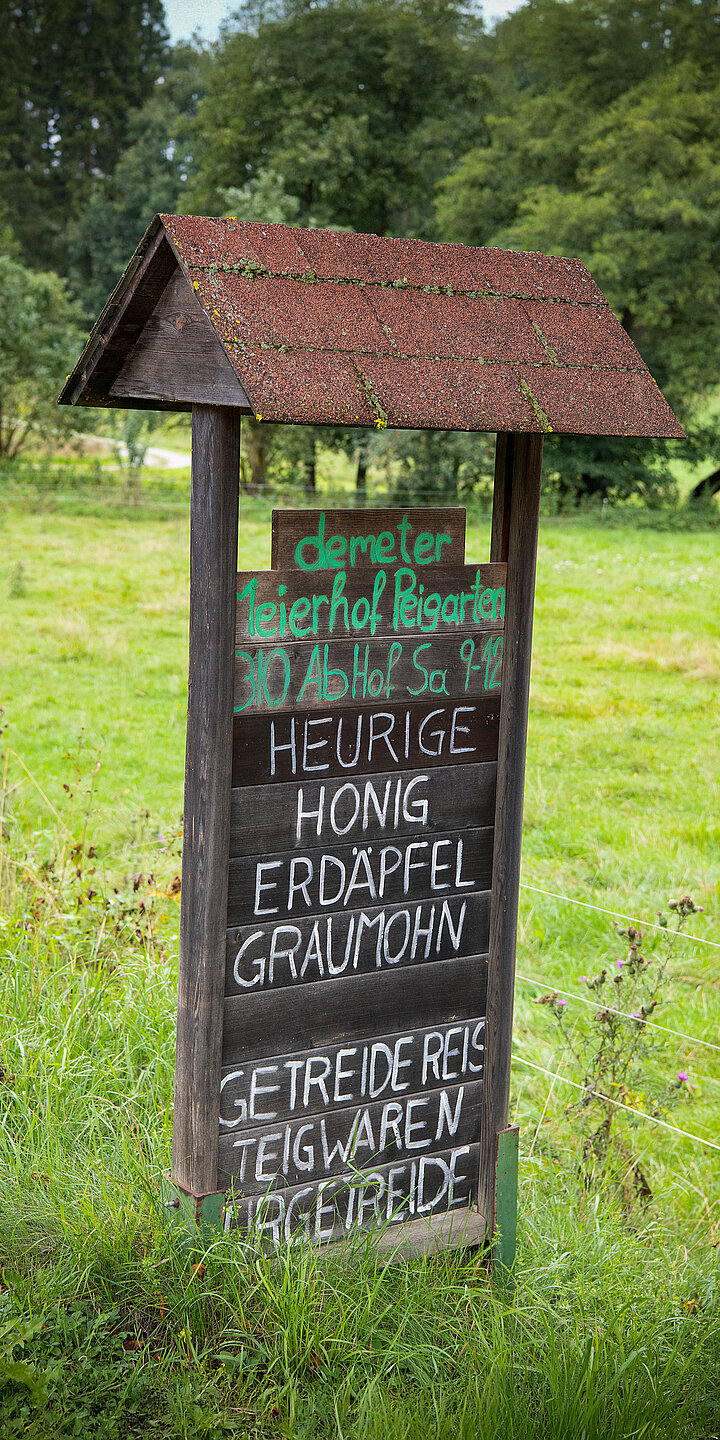 demeter
Meierhof Peigarten
BIO AbHof Sa 9-12
HEURIGE
HONIG
ERDÄPFEL
GRAUMOHN
GETREIDEREIS
TEIGWAREN
URGETREIDE